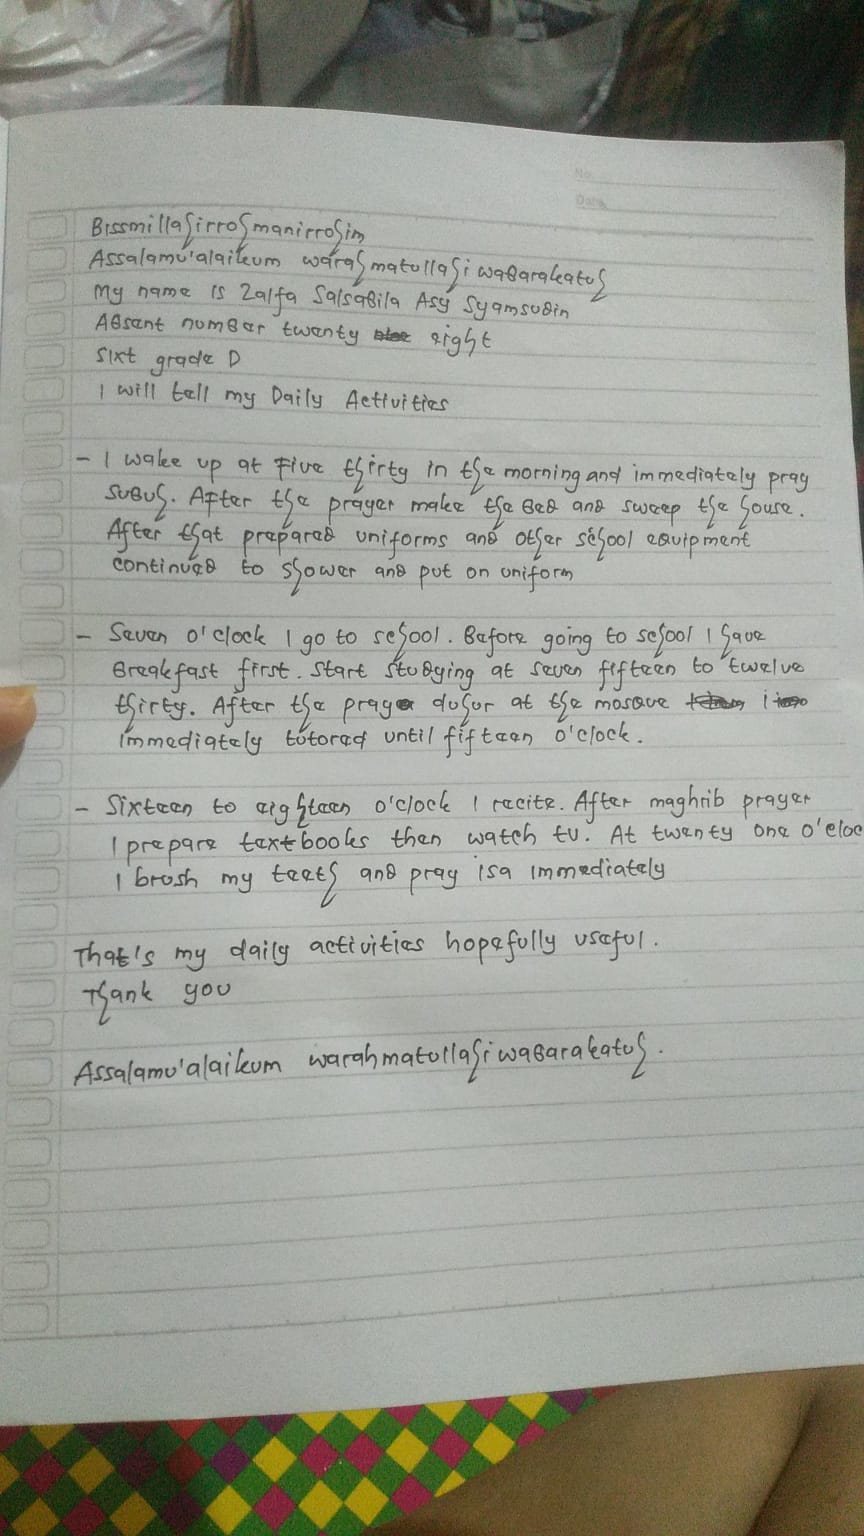 No.
Date
Bissmillahirrohmanirrohim
Assalamu'alaikum warahmatullahi wabarakatuh
My name is Zalfa Salsabila Asy Syamsudin
Absent number twenty eight
Sixt grade D
I will tell my Daily Activities
- I wake up at five thirty in the morning and immediately pray
subuh. After the prayer make the bed and sweep the house.
After that prepared uniforms and other school equipment
continued to shower and put on uniform
- Seven o'clock I go to school. Before going to school I have
Breakfast first. Start studying at seven fifteen to twelve
thirty. After the pray duhur at the mosque i
immediately tutored until fifteen o'clock.
- Sixteen to eighteen o'clock I recite. After maghrib prayer
I prepare textbooks then watch tv. At twenty one o'cloc
I brush my teeth and pray isa immediately
That's my daily activities hopefully useful.
Thank you
Assalamu'alaikum warahmatullahi wabarakatuh.